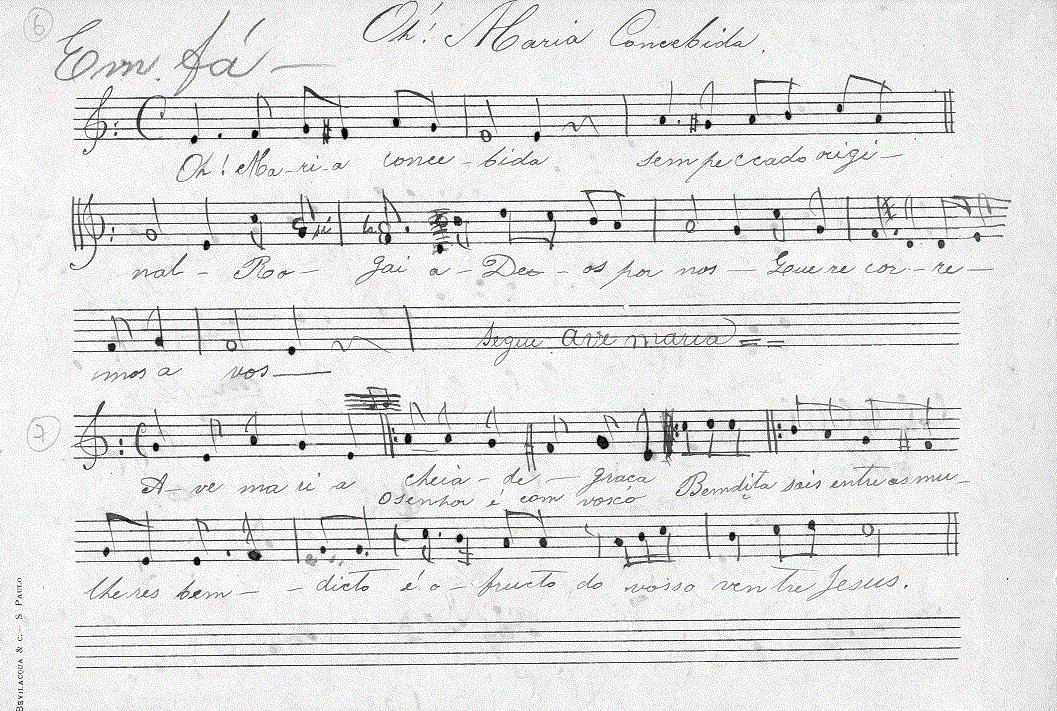 6
Oh! Maria Concebida.
Em fá —
Oh! Ma-ri-a conce-bida sem peccado origi-
nal - Ro- gai a-Deo-os por nos - Que re cor-re-
mos a vos —
Segue Ave maria
7
A-ve ma ri a cheia-de-graca Bemdita sois entre as mu-
o senhor é com vosco
lheres bem- - dicto é o - fructo do vosso ventre Jesus.
BEVILACQUA & C. - S PAULO